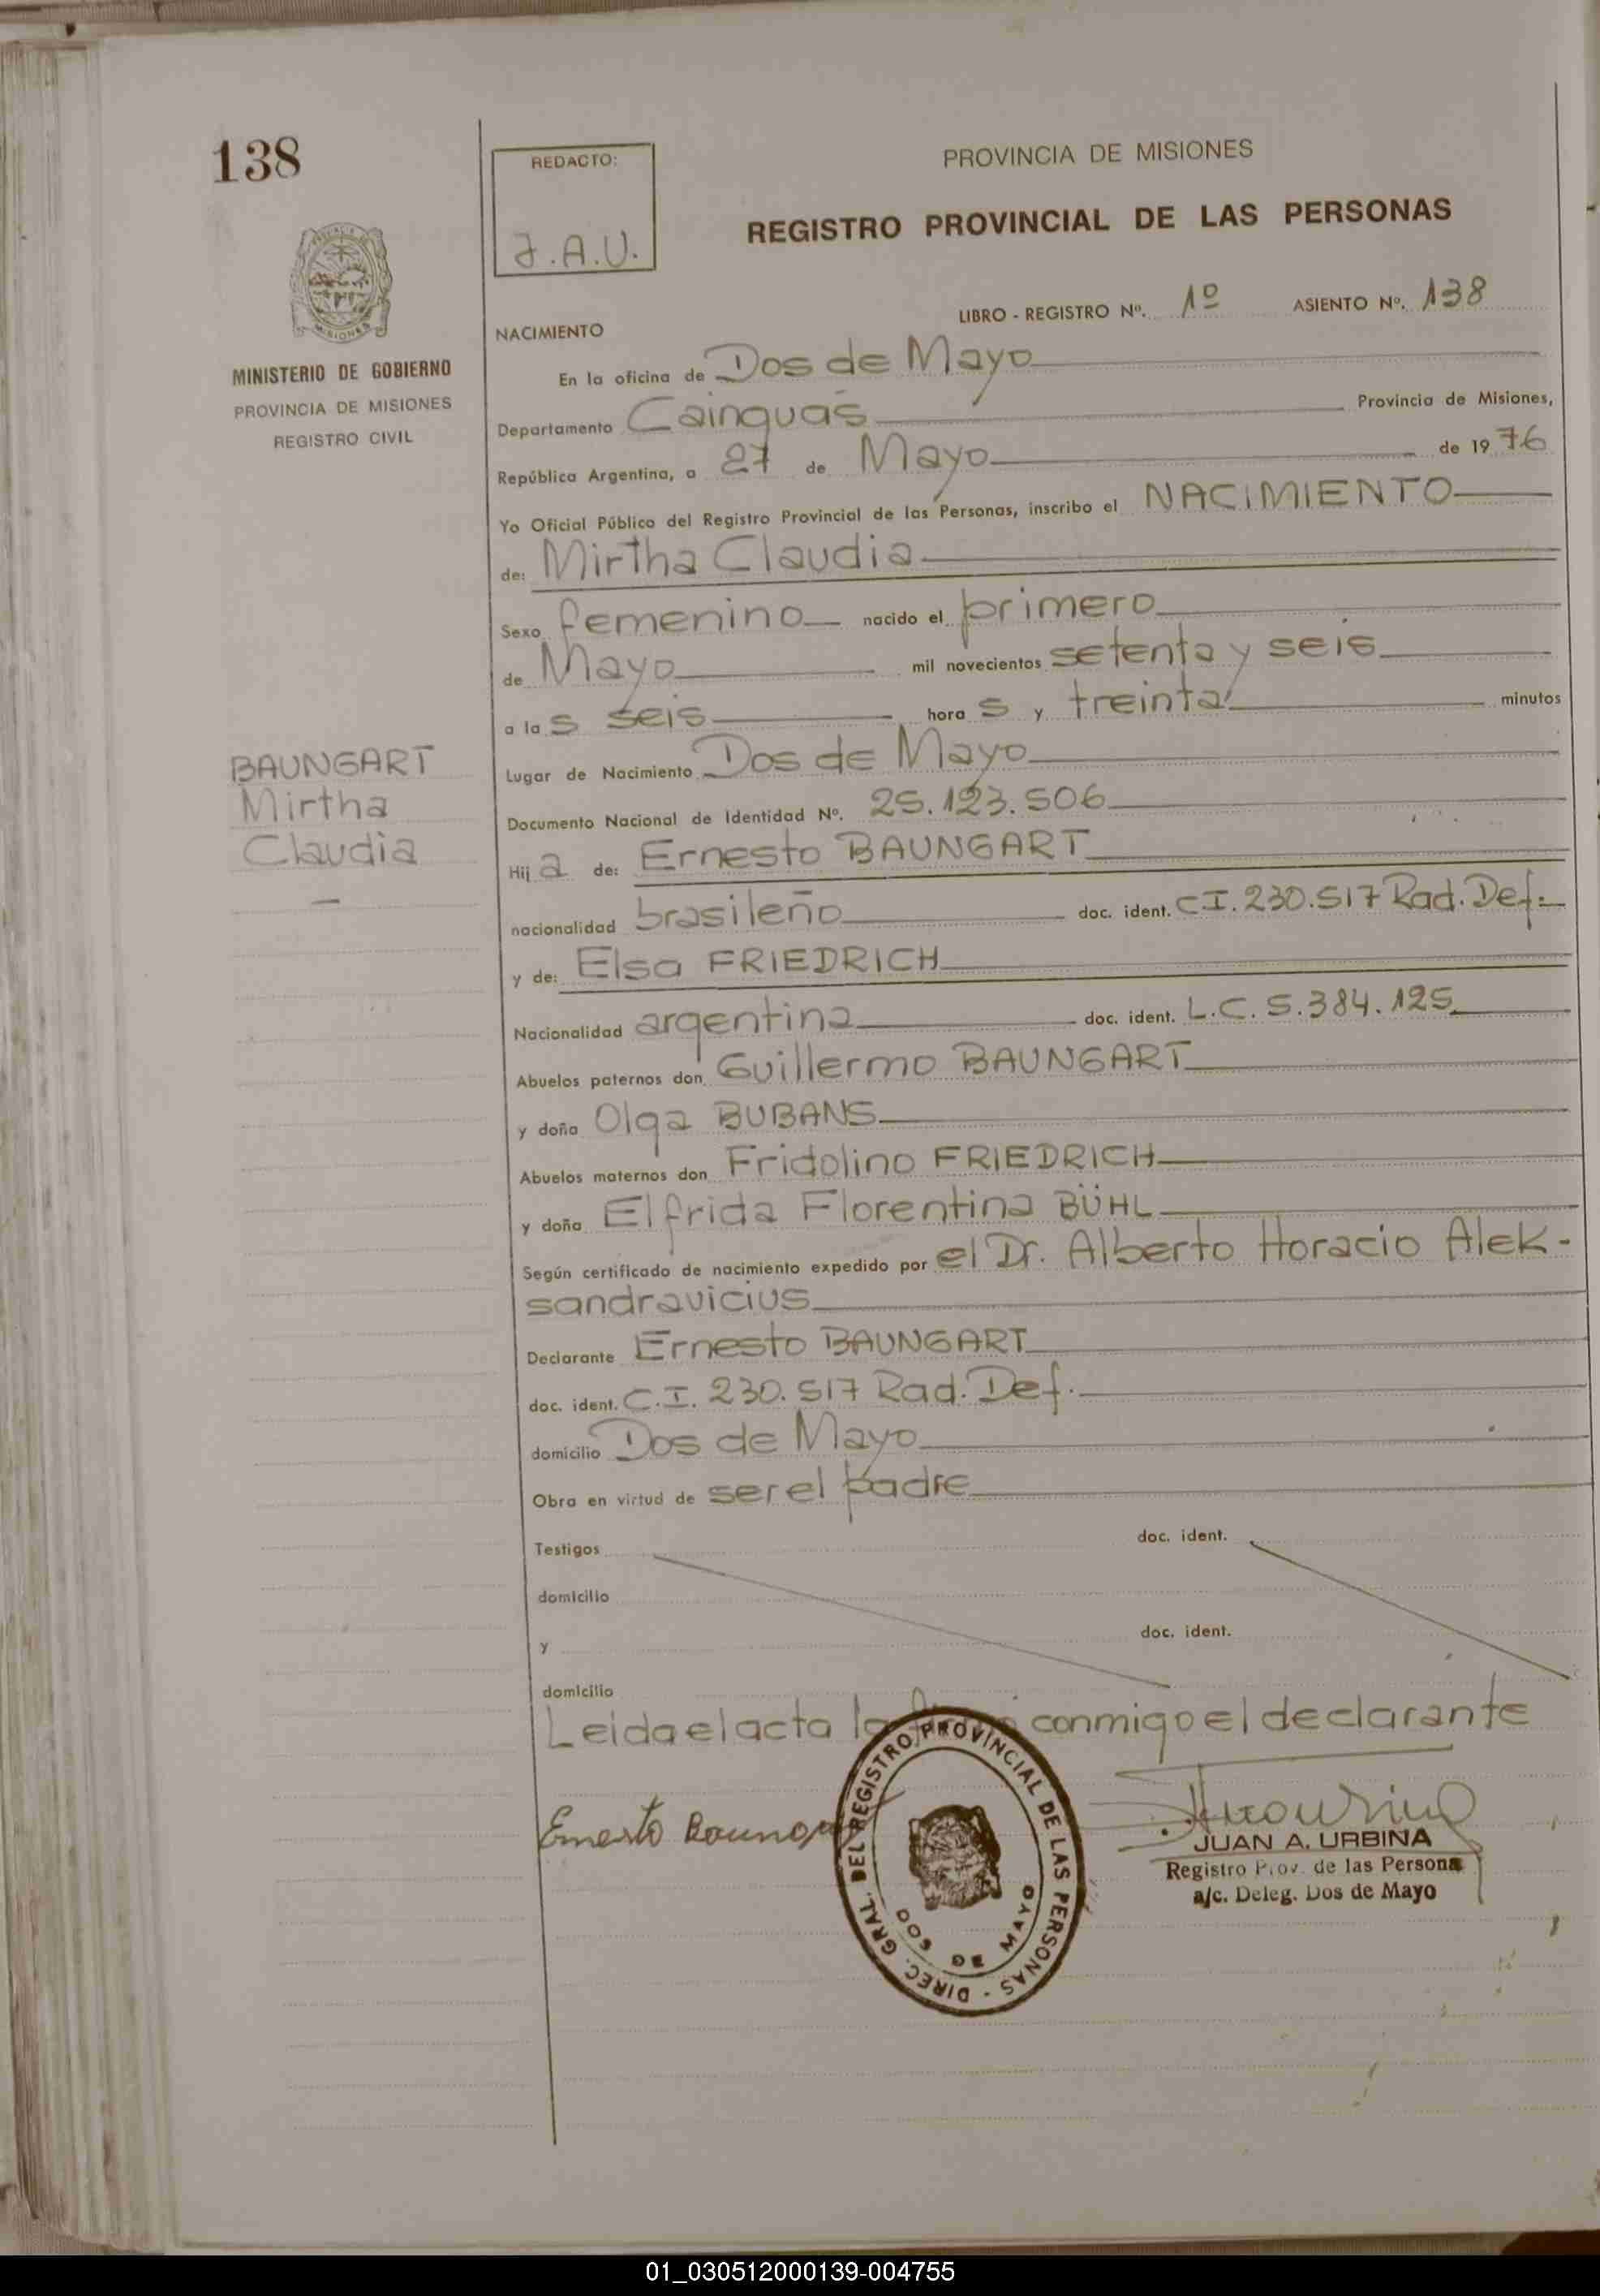 138
REDACTO:
J.A.U.
PROVINCIA DE MISIONES
REGISTRO PROVINCIAL DE LAS PERSONAS
LIBRO - REGISTRO Nº. 1º ASIENTO Nº. 138
MISIONES
MINISTERIO DE GOBIERNO
PROVINCIA DE MISIONES
REGISTRO CIVIL
NACIMIENTO
En la oficina de Dos de Mayo
Departamento Cainguás Provincia de Misiones,
República Argentina, a 27 de Mayo de 1976
Yo Oficial Público del Registro Provincial de las Personas, inscribo el NACIMIENTO
de: Mirtha Claudia
Sexo femenino nacido el primero
de Mayo mil novecientos setenta y seis
a las seis horas y treinta minutos
Lugar de Nacimiento Dos de Mayo
BAUNGART
Mirtha
Claudia
Documento Nacional de Identidad Nº. 25.123.506
Hija de: Ernesto BAUNGART
nacionalidad brasileño doc. ident. C.I. 230.517 Rad. Def.
y de: Elsa FRIEDRICH
Nacionalidad argentina doc. ident. L.C. 5.384.125
Abuelos paternos don Guillermo BAUNGART
y doña Olga BUBANS
Abuelos maternos don Fridolino FRIEDRICH
y doña Elfrida Florentina BÜHL
Según certificado de nacimiento expedido por el Dr. Alberto Horacio Alek-
sandravicius
Declarante Ernesto BAUNGART
doc. ident. C.I. 230.517 Rad. Def.
domicilio Dos de Mayo
Obra en virtud de ser el padre
Testigos doc. ident.
domicilio
y doc. ident.
domicilio
Leida el acta la conmigo el declarante
Ernesto
DIREC. GRAL. DEL REGISTRO PROVINCIAL DE LAS PERSONAS -
DOS DE MAYO
JUAN A. URBINA
Registro Prov. de las Persona
a/c. Deleg. Dos de Mayo
01_030512000139-004755